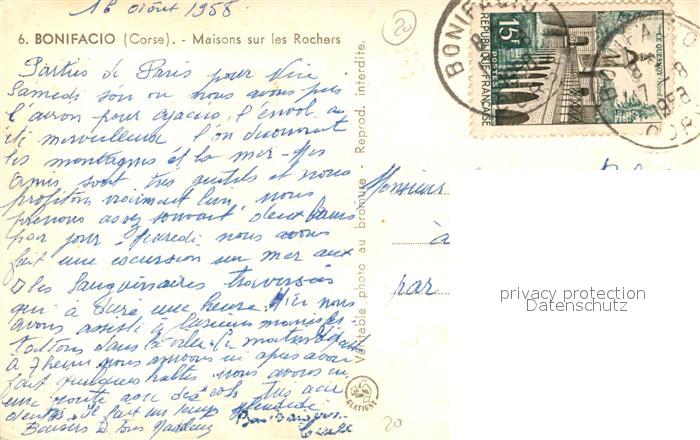 16 août 1958
20
6. BONIFACIO (Corse). - Maisons sur les Rochers
Parties de Paris pour Nice
Samedi soir ou nous avons pris
l'avion pour Ajaccio, l'envol a
été merveilleux l'on découvrait
les montagnes et la mer - Mes
amis sont très gentils et nous
profitons vraiment bien, nous
prenons assez souvent deux bains
par jour - Mercredi nous avons
fait une excursion sur mer aux
Iles Sanguinaires traversée
qui a duré une heure. Ici nous
avons assisté à plusieurs manifes-
tations dans la ville. Ce matin départ
à 7 heures nous arrivons ici après avoir
fait quelques haltes nous avons eu
une route avec des cols très acci
dentés. Il fait un temps splendide
Baisers à tous
Véritable photo au bromure - Reprod. interdite.
GLATIGNY
BONIFACIO
15F
REPUBLIQUE FRANÇAISE
POSTES
LE QUESNOY-Nord
17-8
1958
Monsieur
à
par
privacy protection
Datenschutz
20